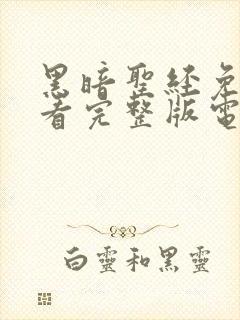 黑暗聖経免
看完整版電
白靈和黑靈